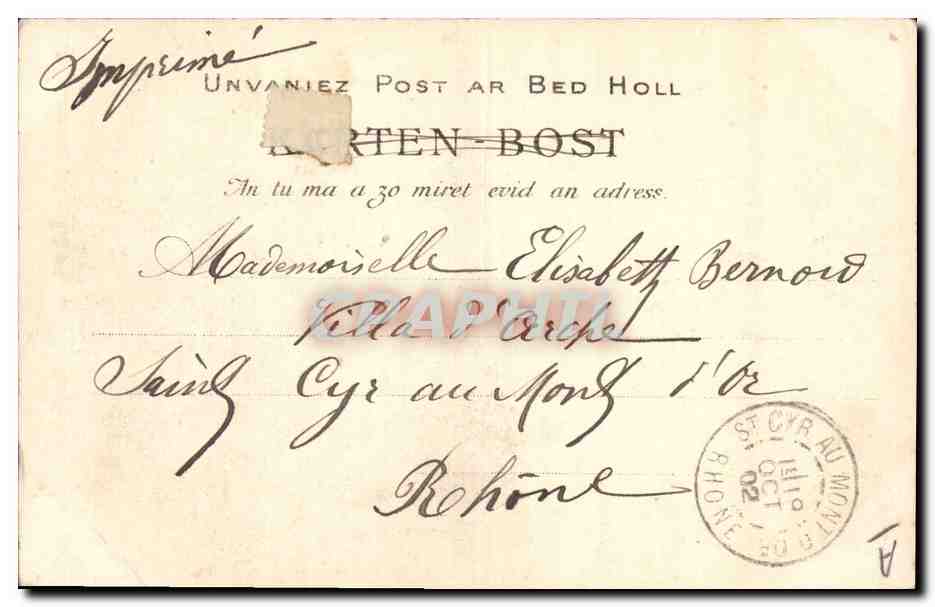 Imprimé
UNVANIEZ POST AR BED HOLL
KARTEN-BOST
An tu ma a zo miret evid an adress.
Mademoiselle Elisabeth Bernoud
Villa d'Arche
Saint Cyr au Mont d'Or
Rhône
ST CYR AU MONT D'OR
RHONE
1E / 19
OCT
02
A